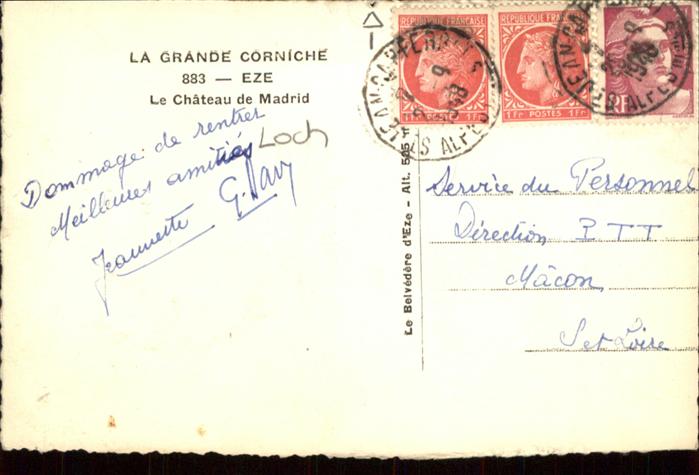 LA GRANDE CORNICHE
883 — EZE
Le Château de Madrid
Dommage de rentrer
Loch
Meilleures amitiés
Jeannette
Le Belvédère d'Eze - Alt.
REPUBLIQUE FRANÇAISE
1 Fr POSTES 1 Fr
REPUBLIQUE FRANÇAISE
1 Fr POSTES 1 Fr
RF
Service du Personnel
Direction P T T
Mâcon
S et Loire